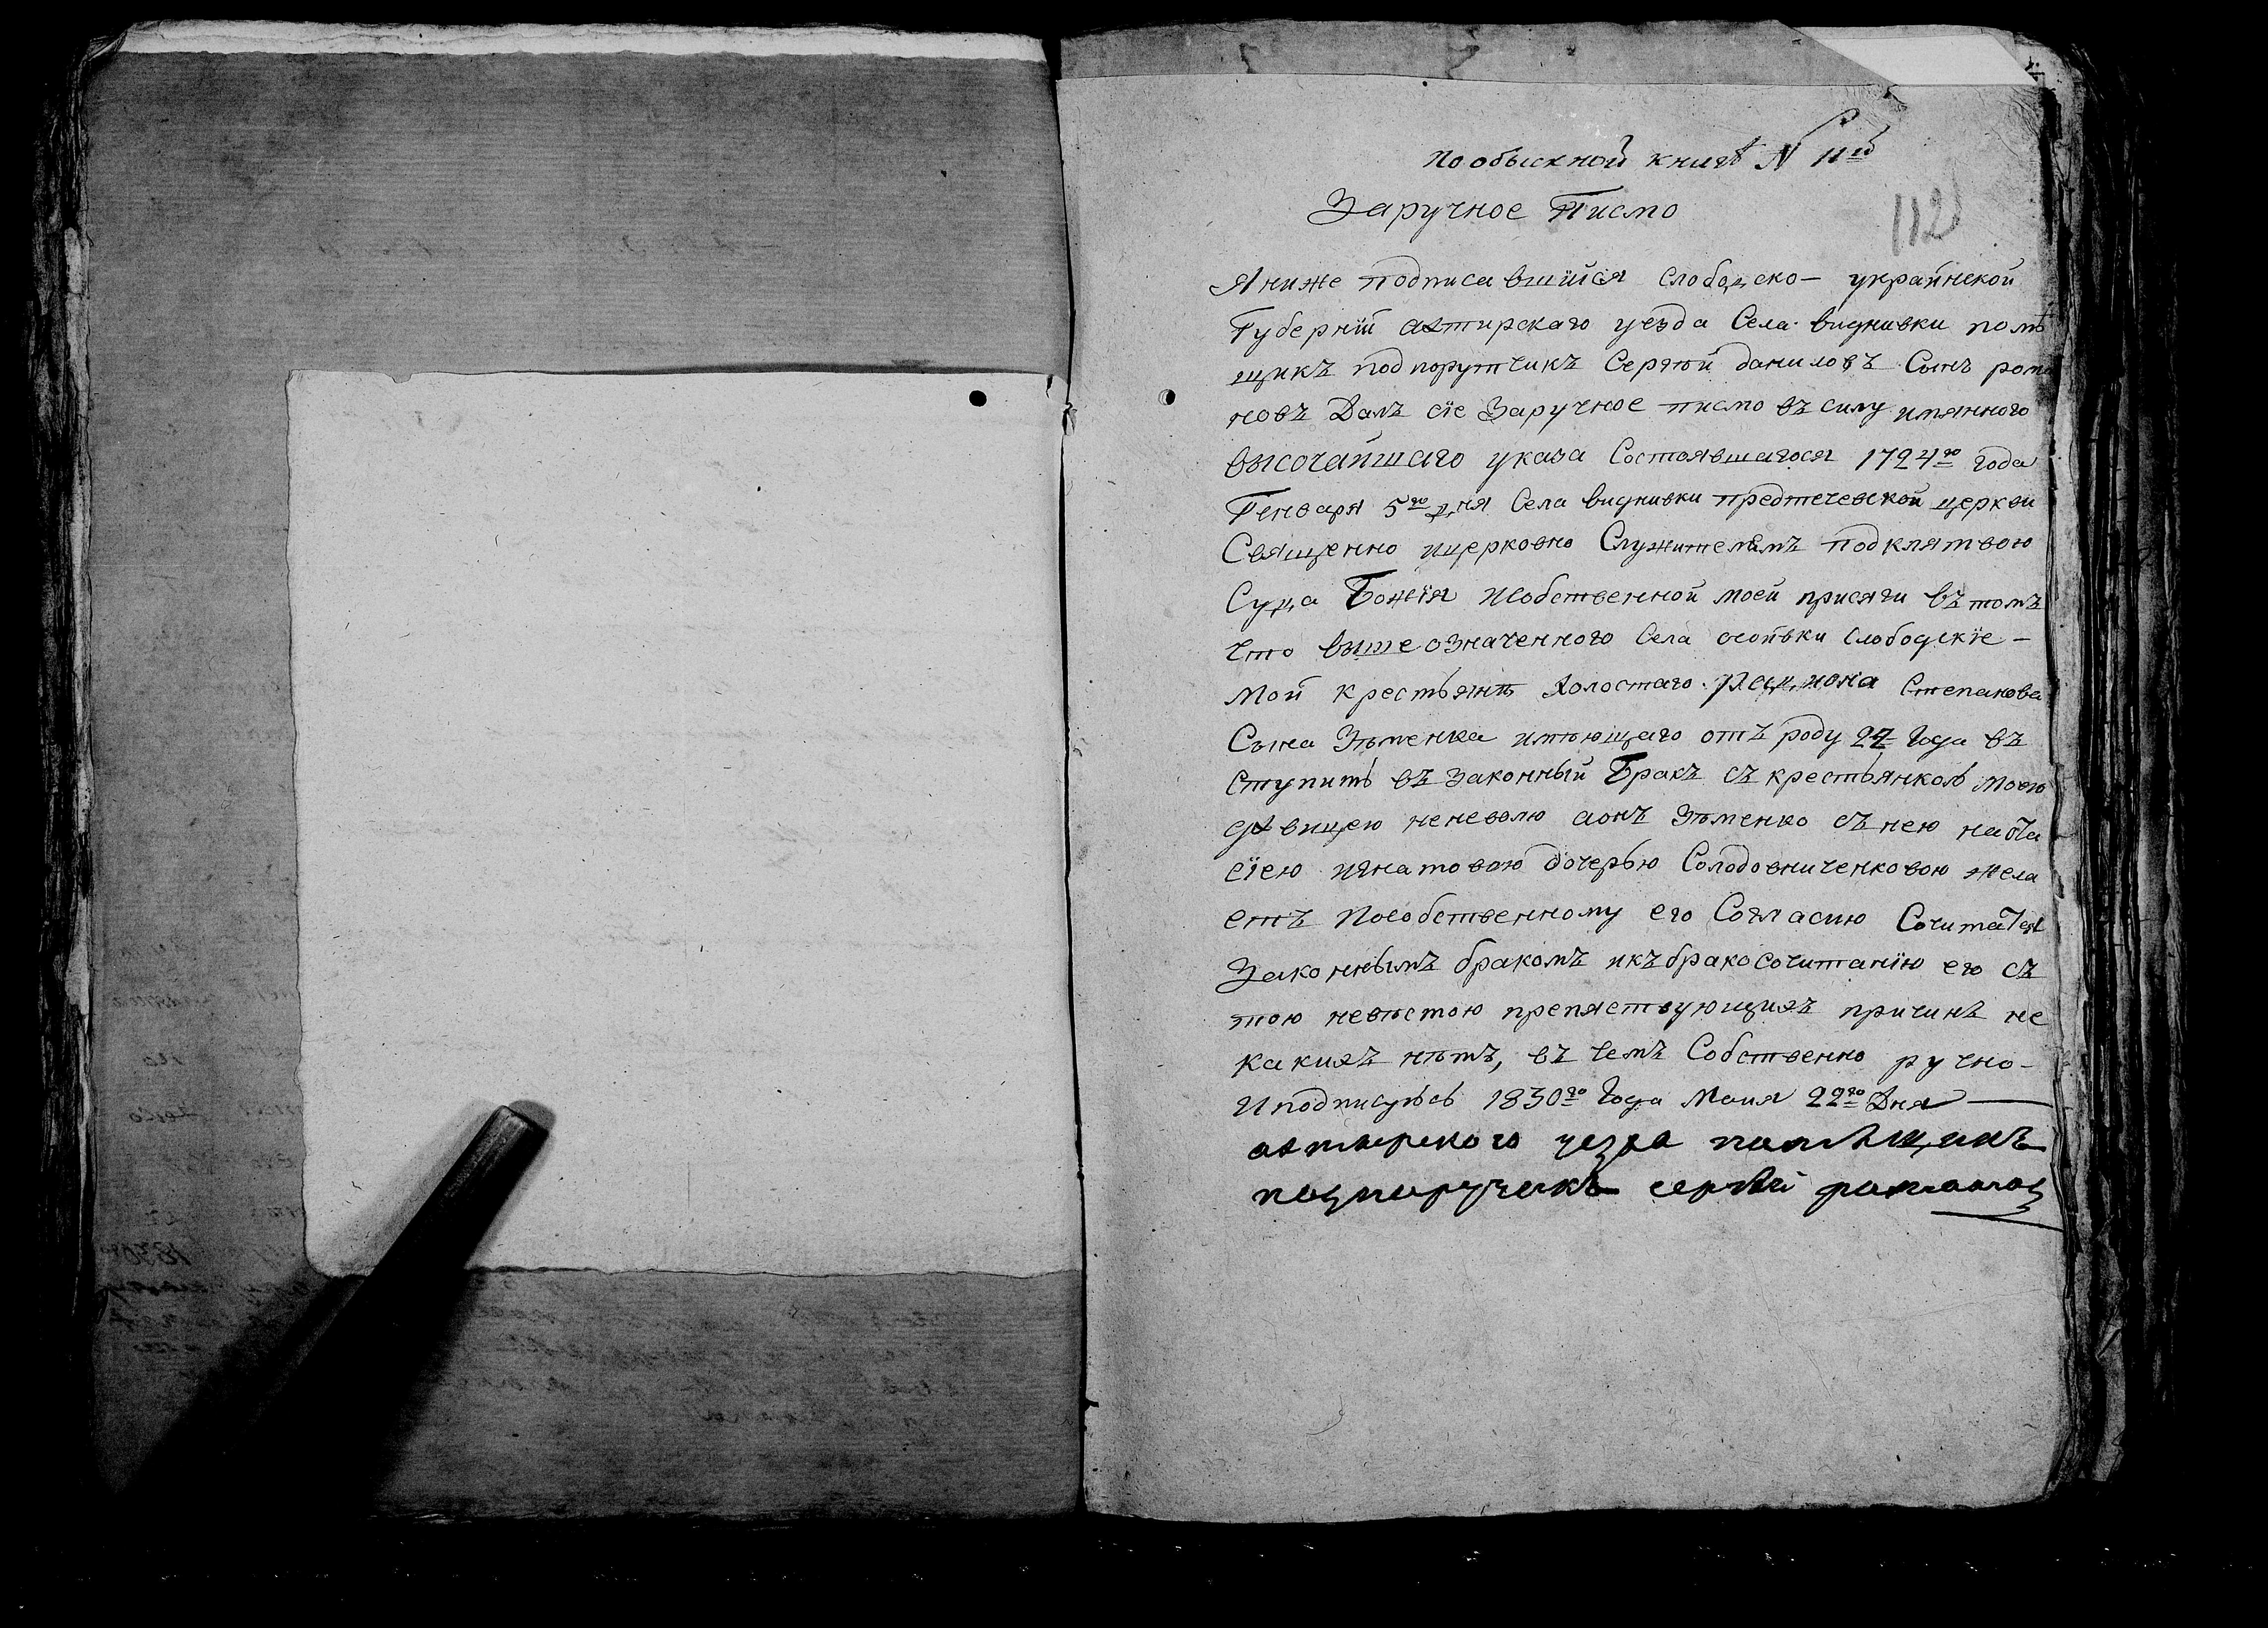 по обыскной книгѣ N 11й
Заручное Писмо
112
Я ниже подписавшiйся слободско- украинской
Губернiи ахтирскаго уезда Села виднивки помѣ
щикъ подпорутчикъ Сергѣй даниловъ Сынъ рома
новъ Далъ сiе Заручное писмо въ силу имянного
высочайшаго указа Состоявшагося 1724го года
Генваря 5го дня Села виднивки предтечевской церкви
Священно ицерковно Служителямъ подклятвою
Суда Божiя исобственной моей присяги въ томъ
Что вышеозначенного Села слободскiе-
мой крестьянъ холостаго Родиона Степанова
Сына имѣющаго отъ роду Года въ
ступить въ законный Бракъ съ крестьянкою моею
дѣвицею неневолю аонъ съ нею ната
сiею игнатовою дочерью Солодовниченковою жела
етъ пособственному его Согласию Сочитатся
Законнымъ бракомъ икъ бракосочитанiю его съ
тою невѣстою препятствующихъ причинъ не
какихъ нѣтъ, въ чемъ Собственно ручно-
И подписуюсь 1830го Года Маия 22го Дня
ахтырского уезда помѣщикъ
подпоручикъ сергѣй романов